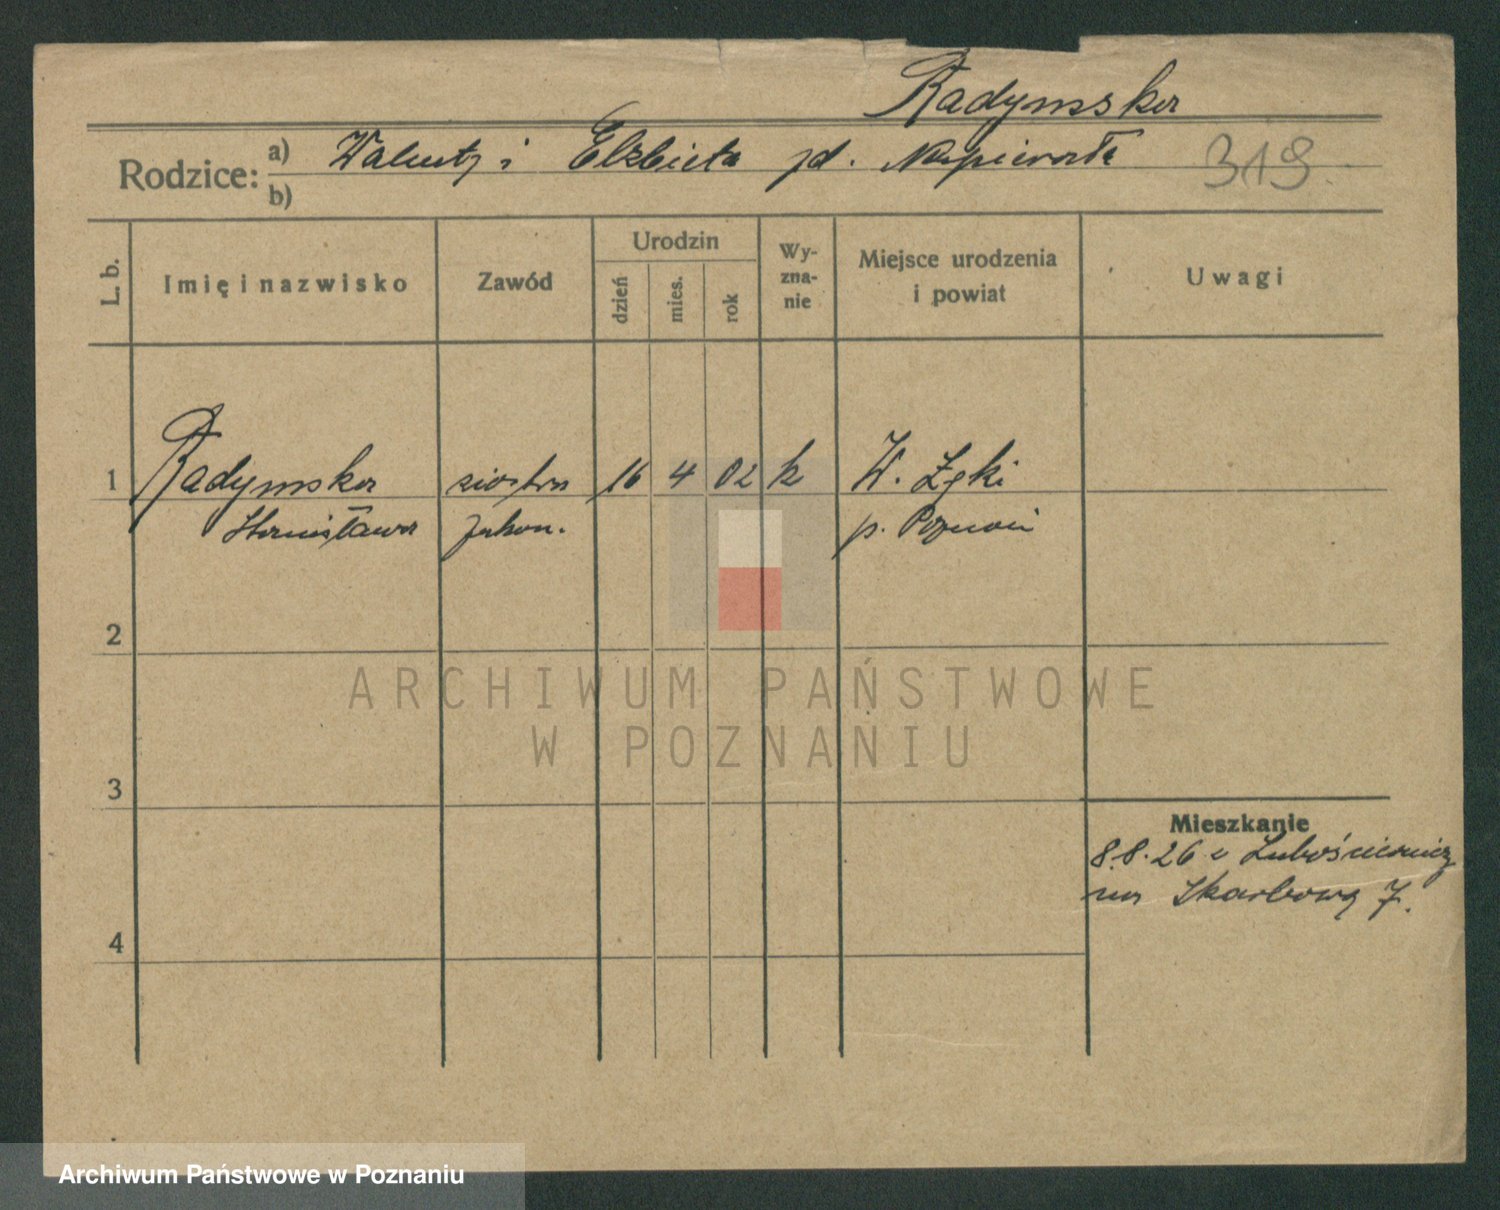 Radymska
Rodzice: a) Walenty i Elżbieta zd. Napierała
b)
319.
L. b.
Imię i nazwisko
Zawód
Urodzin
dzień
mies.
rok
Wy-
zna-
nie
Miejsce urodzenia
i powiat
Uwagi
1 Radymska siostra 16 4 02 k W. Łęki
Stanisława zakon. p. Poznań
2
ARCHIWUM PAŃSTWOWE
W POZNANIU
3
Mieszkanie
8.8.26 z
na Skarbową 7.
4
Archiwum Państwowe w Poznaniu